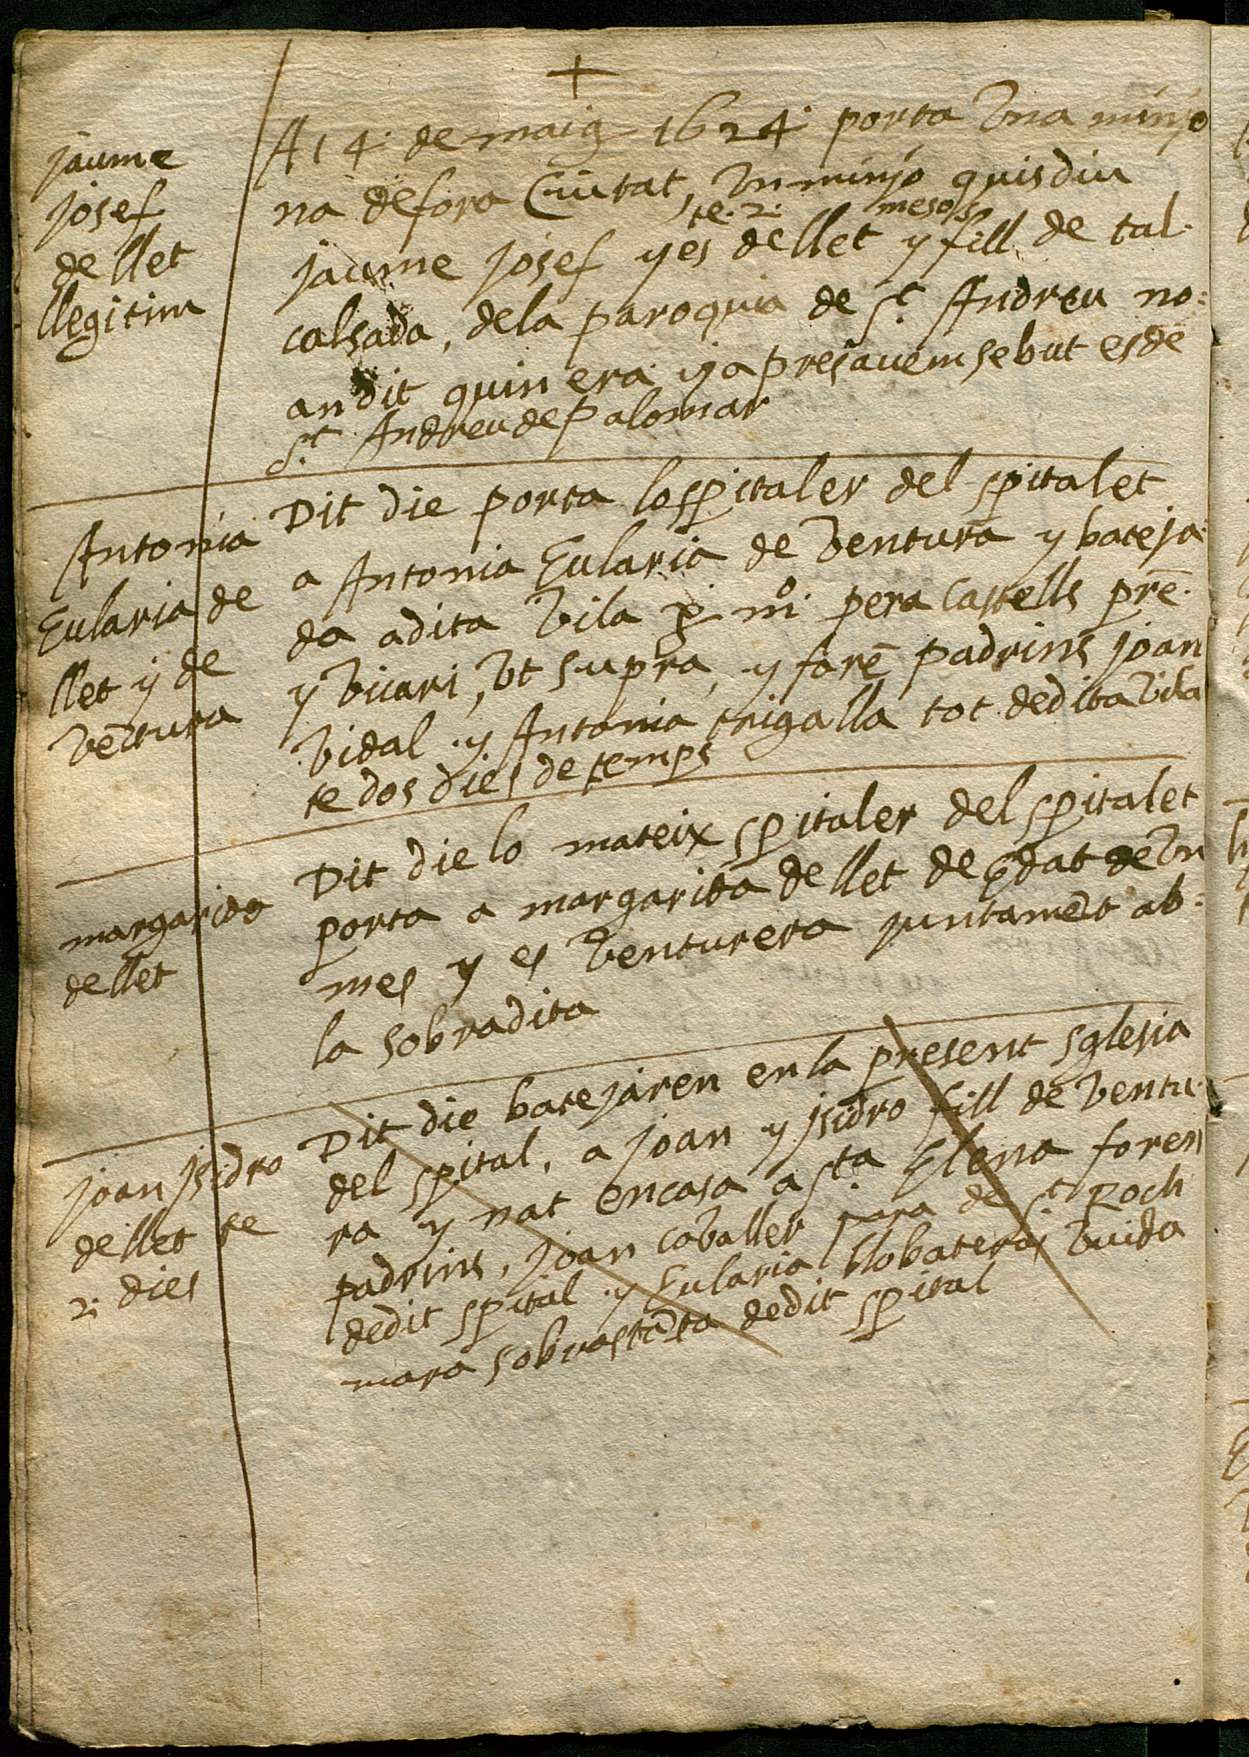 +
jaume
josef
de llet
llegitim
A 14 de maig 1624 porta Una minyo
na defora Ciutat, Un minjo quis diu
te 2 mesos
jaume josef yes de llet y fill de tal
calsada, dela paroquia de St Andreu no
an dit quin era y apres auem sebut es de
St Andreu de Palomar
Antonia
Eularia de
llet y de
ventura
Dit die porta lospitaler del spitalet
a Antonia Eularia de Ventura y bateja
da a dita Vila p mo pera Castells pre
y Vicari, Vt supra, y fore padrins joan
Vidal y Antonia trigalla tot de dita Vila
te dos dies de temps
margarida
de llet
Dit die lo mateix spitaler del spitalet
porta a margarida de llet de Edat de Un
mes y es Venturera juntament ab
la sobradita
joan jsidro
de llet te
2 dies
Dit die batejaren en la present sglesia
del spital, a joan y jsidro fill de Ventu
ra y nat encasa a sta Elena foren
padrins, joan caballer para de St Roch
de dit spital y Eularia llobateras Viuda
mara sobrastanta de dit spital